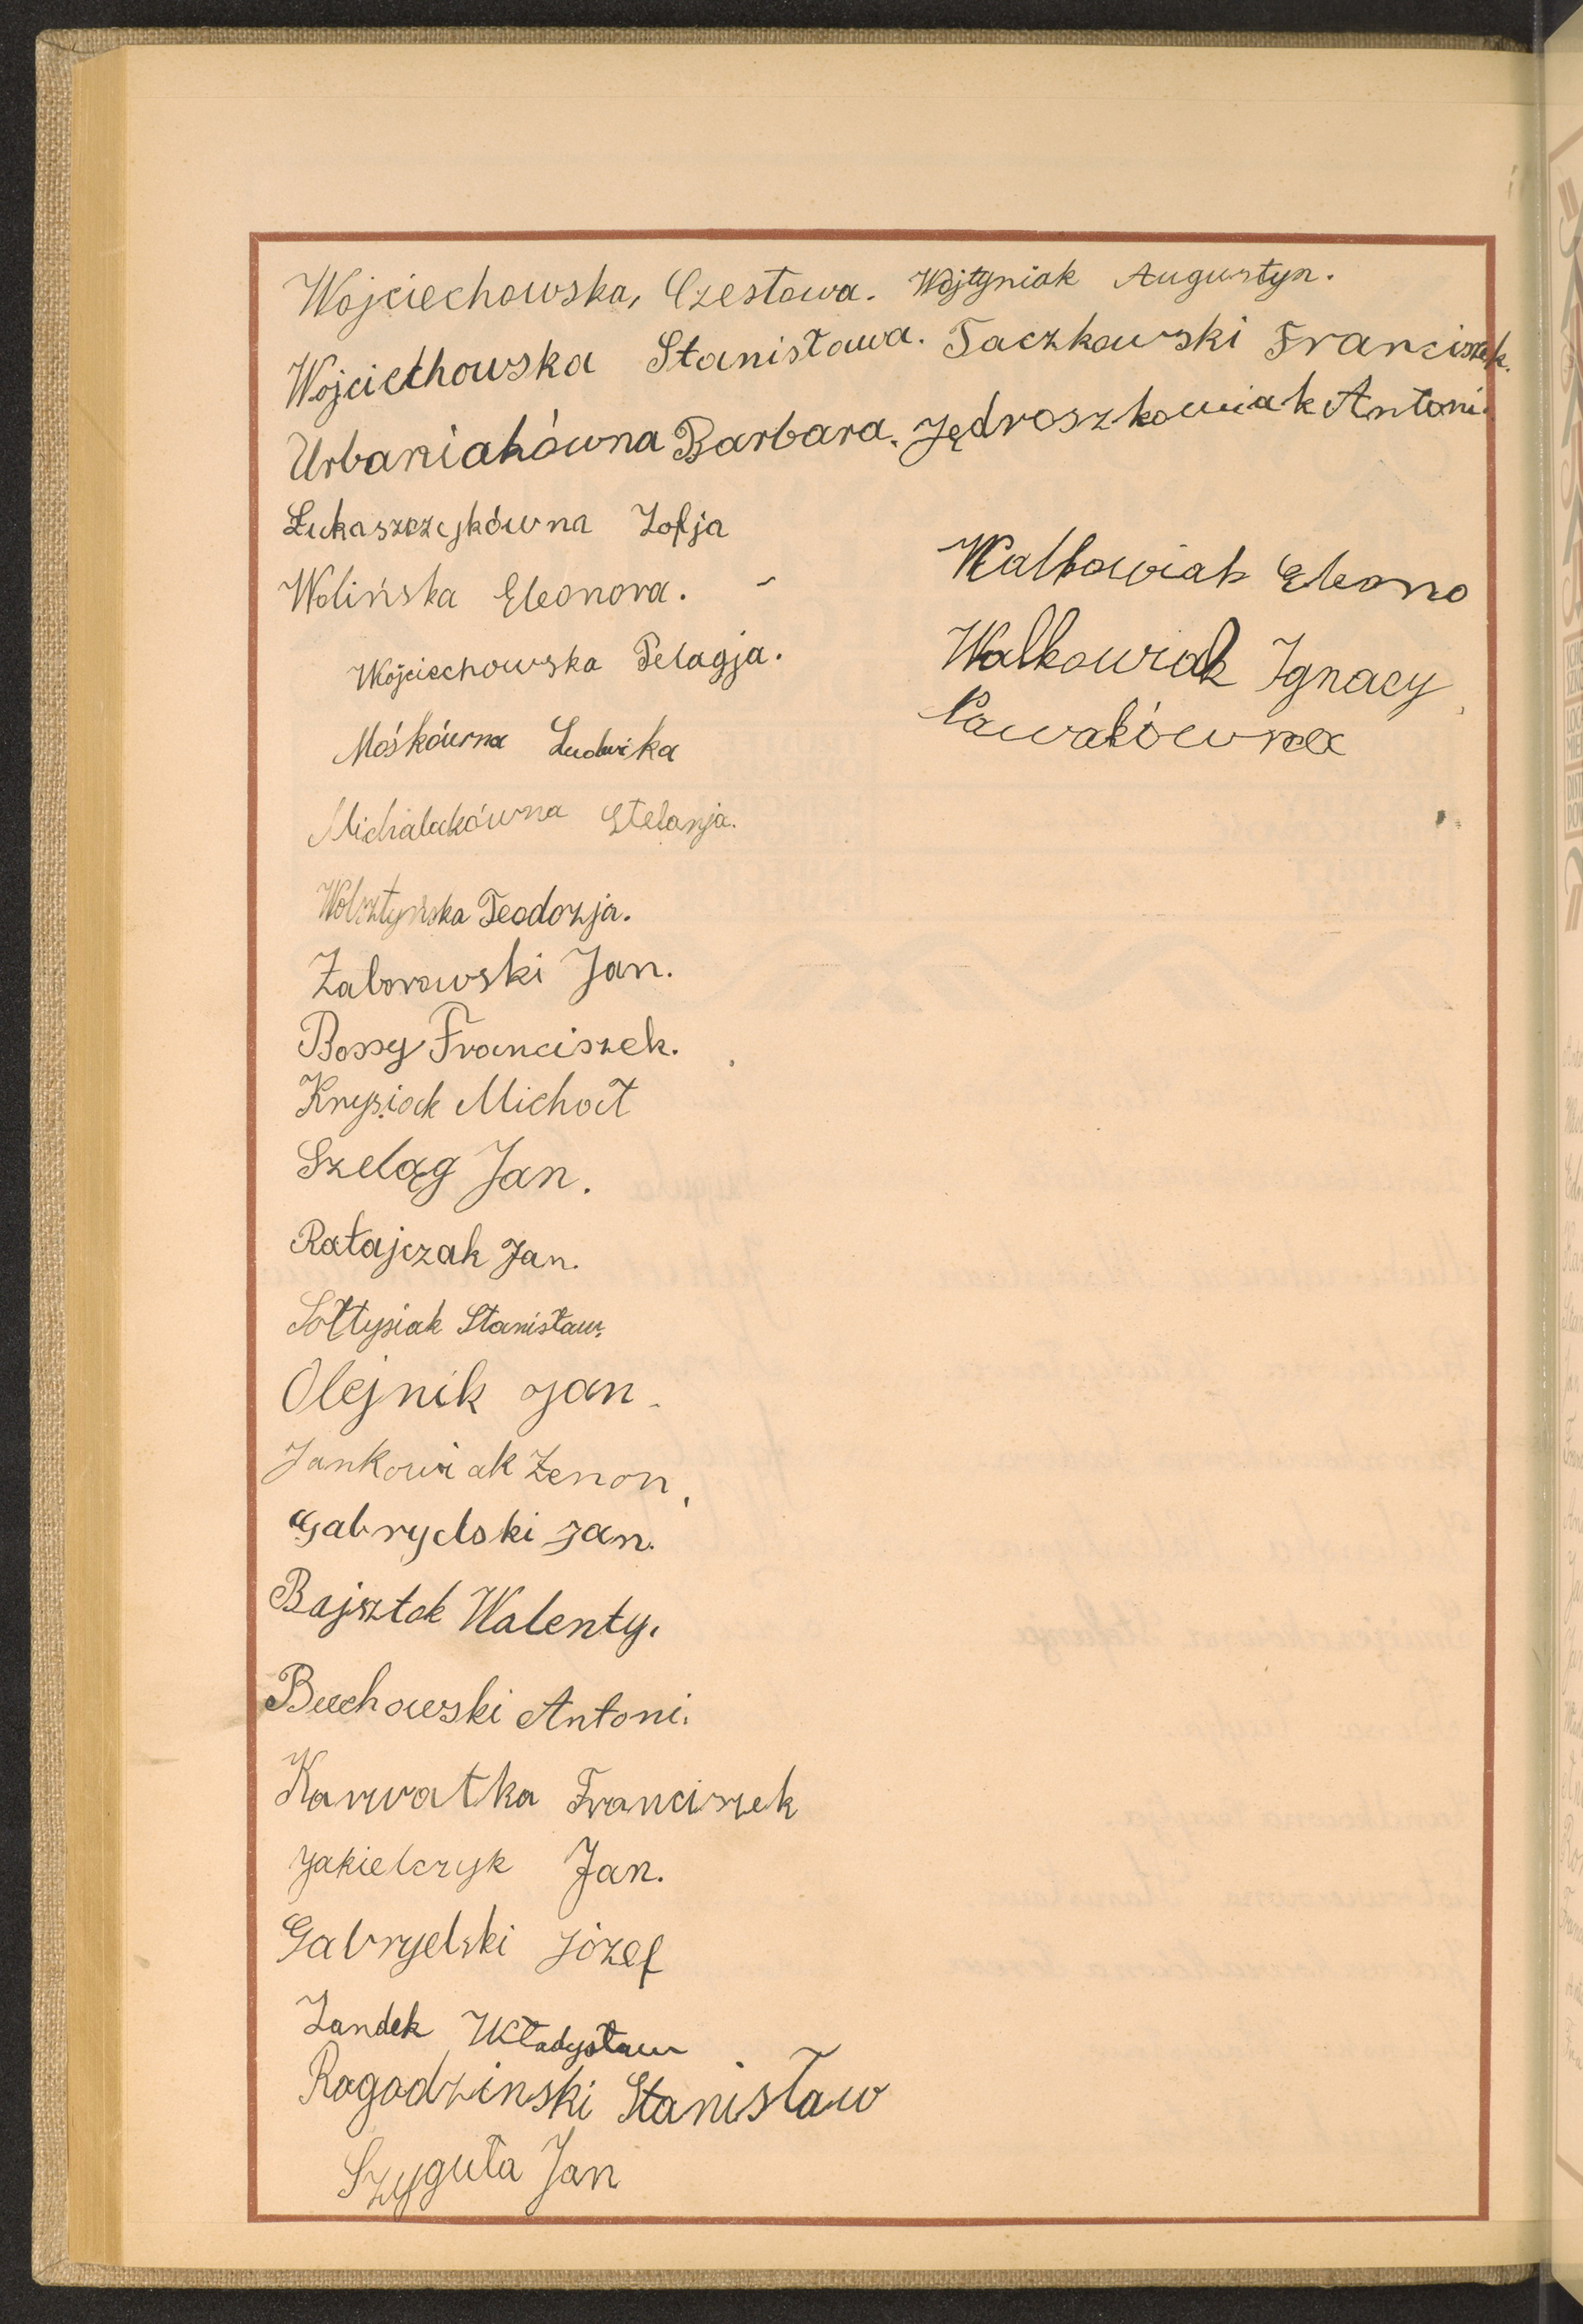 Wojciechowska, Czestowa. Wojtyniak Augustyn.
Wojciechowska Stanisława. Taczkowski Franciszek.
Urbaniakówna Barbara. Jędroszkowiak Antoni.
Łukaszczykówna Zofja
Wolińska Eleonora.
Wojciechowska Pelagja.
Mośkówna Ludwika
Michalakówna Stefanja.
Wolsztyńska Teodozja.
Zaborowski Jan.
Bossy Franciszek.
Krysiak Michał
Szeląg Jan.
Ratajczak Jan.
Sołtysiak Stanisław.
Olejnik Jan.
Jankowiak Zenon,
Gabryelski Jan.
Bajsztok Walenty.
Buchowski Antoni.
Karwatka Franciszek
Jakielczyk Jan.
Gabryelski Józef
Zandek Władysław
Rogodzinski Stanisław
Szyguła Jan
Walkowiak Eleono
Walkowiak Ignacy,
Pawakówna